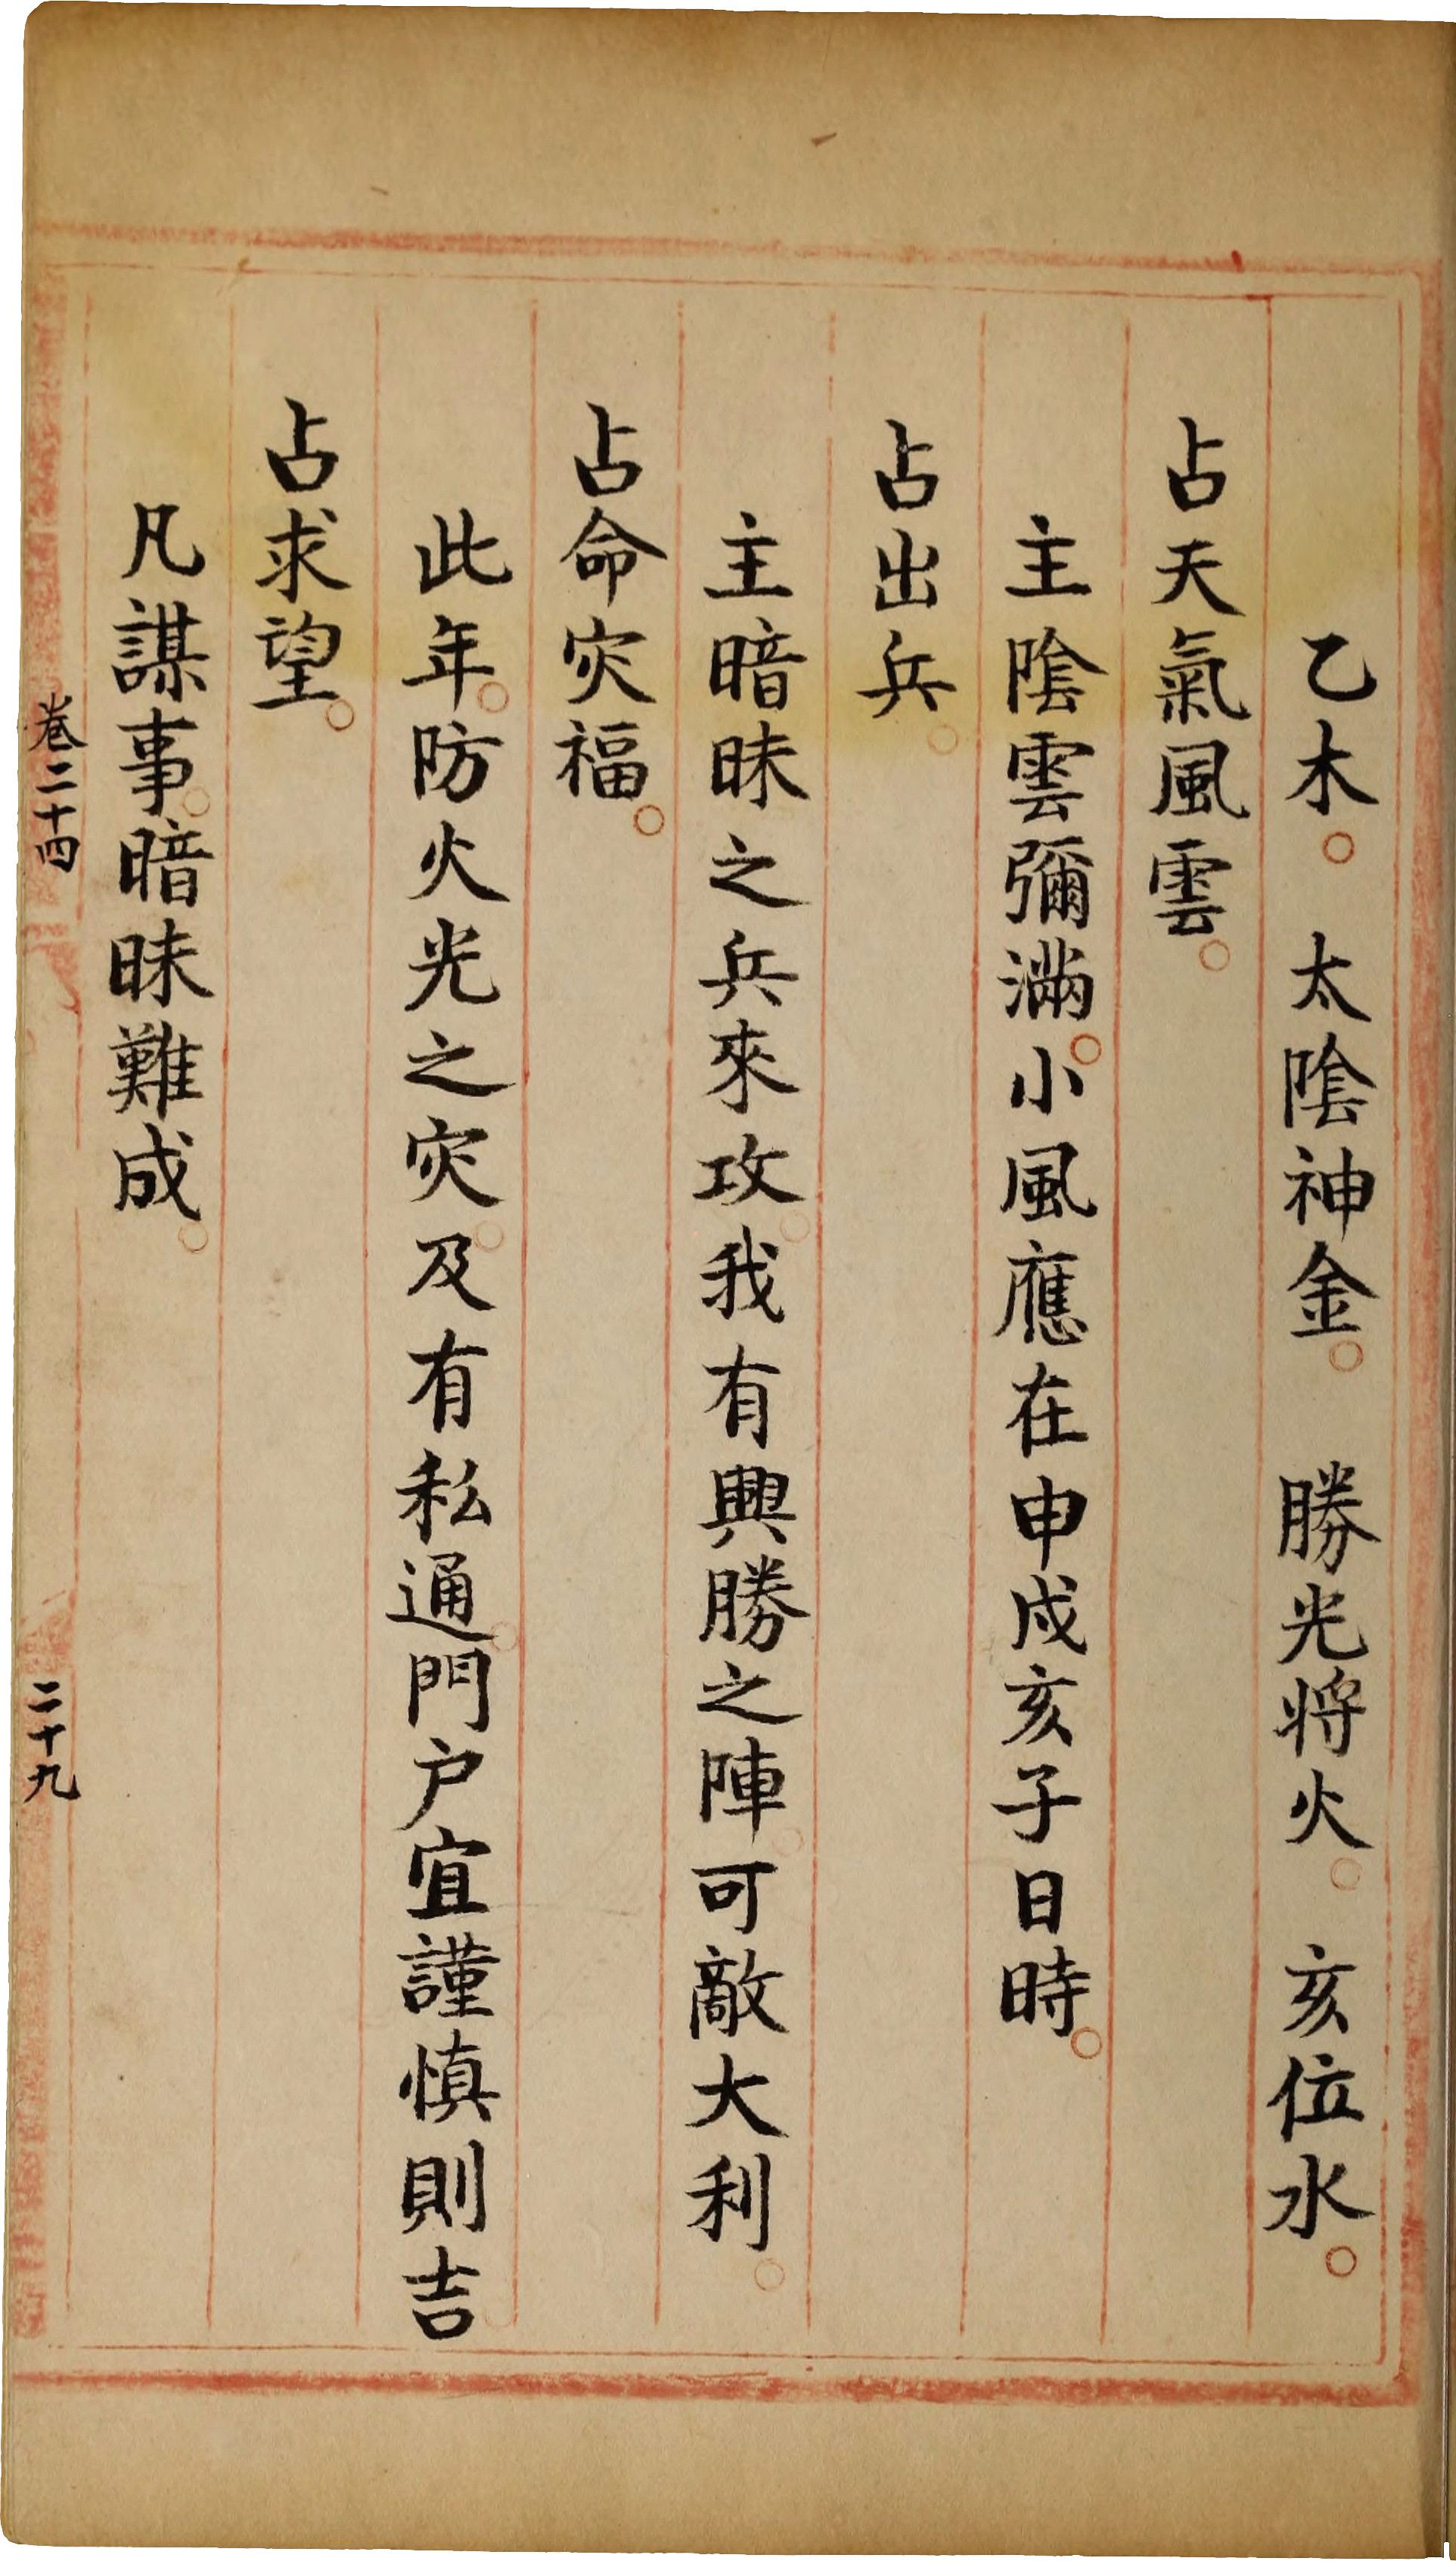 乙木。太陰神金。勝光将火。亥位水。
占天氣風雲。
主陰雲彌滿。小風應在申戌亥子日時。
占出兵。
主暗昧之兵來攻。我有興勝之陣。可敵大利。
占命灾福。
此年。防火光之灾。及有私通。門户宜謹慎則吉。
占求望。
凡謀事。暗昧難成。
卷二十四
二十九